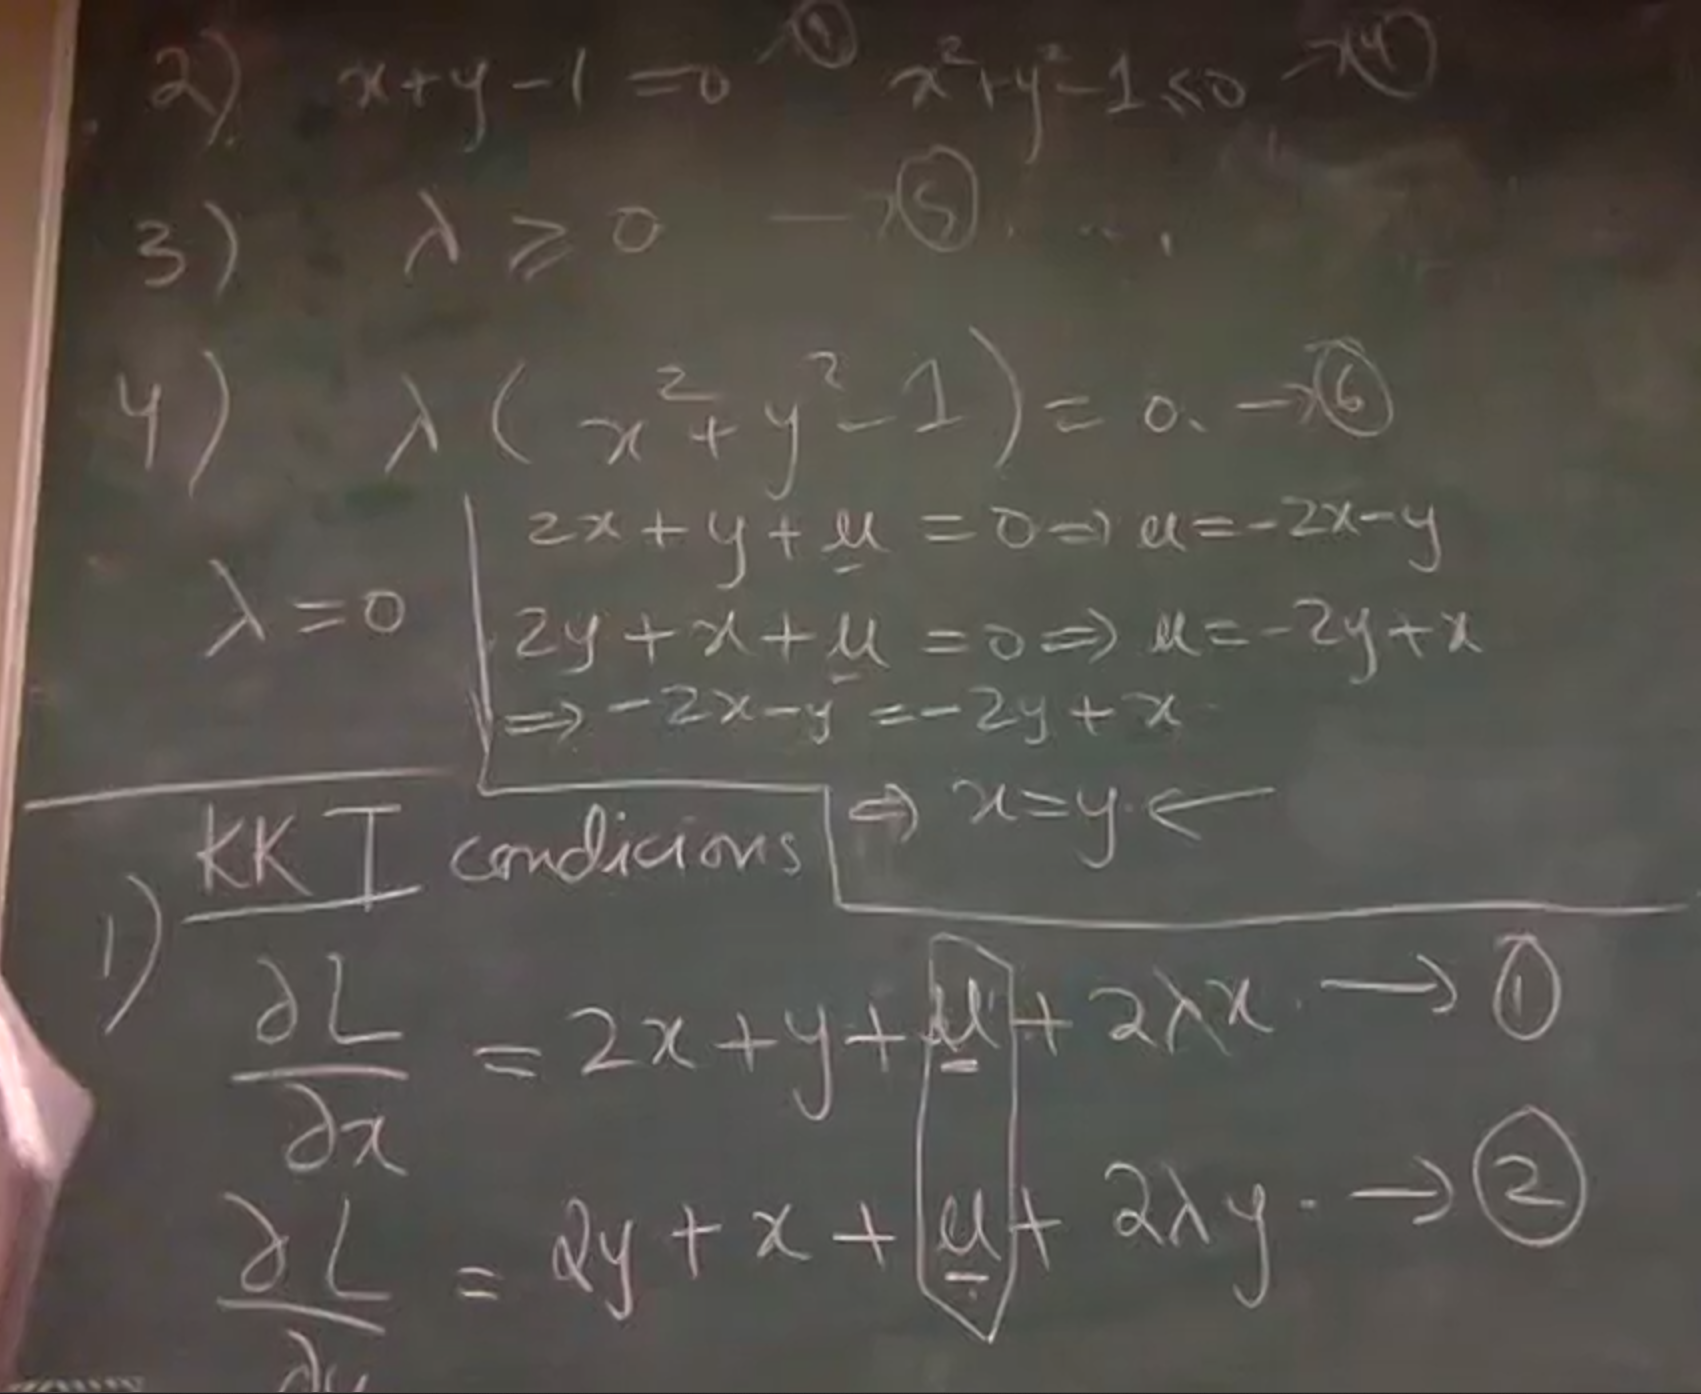 2) x+y-1=0 x²+y²-1≤0 →④
3) λ ≥ 0 →⑤
4) λ(x²+y²-1)=0. →⑥
2x+y+μ=0⇒μ=-2x-y
λ=0
2y+x+μ=0⇒μ=-2y+x
⇒-2x-y=-2y+x
⇒ x=y ←
KKT condicions
1) ∂L/∂x = 2x+y+μ+2λx. →①
∂L/∂y = 2y+x+μ+2λy. →②